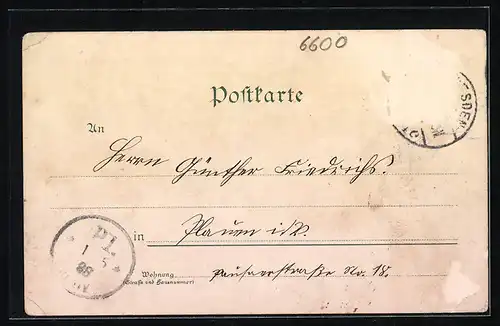 6600
Postkarte
An
Herrn Günther Friedrichs.
in Plauen i/V.
Wohnung
(Straße und Hausnummer)
Pausaerstraße No. 18.
PL
1 5
98